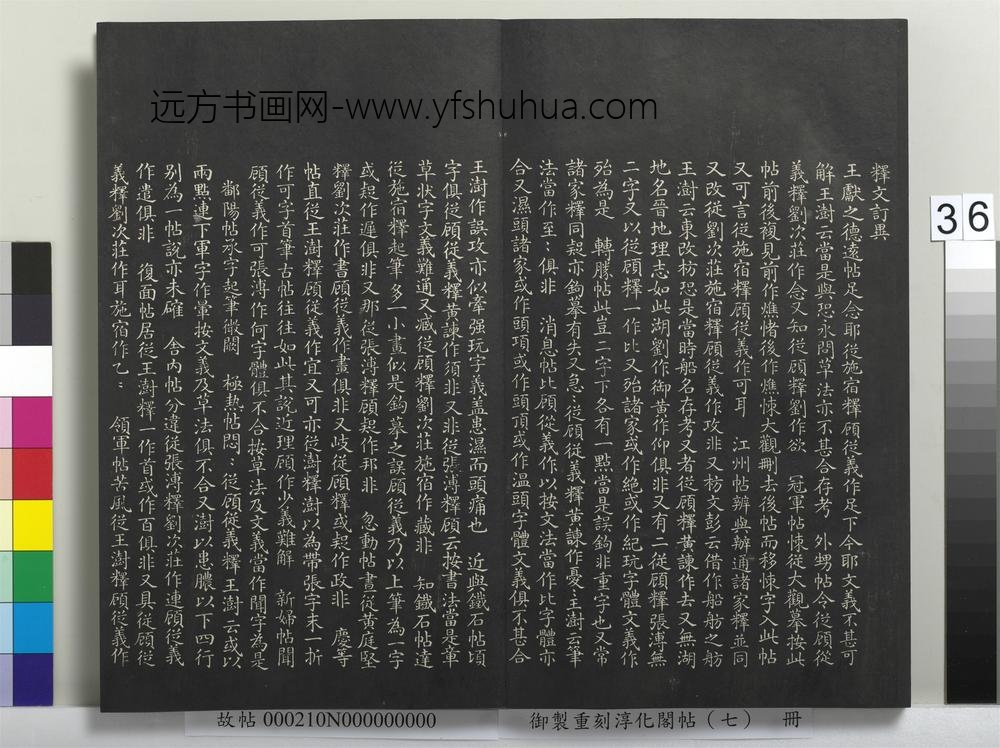 远方书画网-www.yfshuhua.com
36
釋文訂異
王獻之德遠帖足念耶從施宿釋顧從義作足下今耶文義不甚可
解王澍云當是與恐永問草法亦不甚合存考 外甥帖令從顧從
義釋劉次莊作念又知從顧釋劉作欲 冠軍帖悚從大觀摹按此
帖前後複見前作燋悚後作燋悚大觀刪去後帖而移悚字入此帖
又可言從施宿釋顧從義作可耳 江州帖辨與辦通諸家釋並同
又改從劉次莊施宿釋顧從義作攻非又枋文彭云借作船舫之舫
王澍云東改枋恐是當時船名存考又者從顧釋黃諫作去又無湖
地名晉地理志如此湖劉作御黃作仰俱非又有二從顧釋張溥無
二字又以從顧釋一作比又殆諸家或作絕或作紀玩字體文義作
殆為是 轉勝帖此豈二字下各有一點當是誤鉤非重字也又常
諸家釋同起亦鉤摹有失又急從顧從義釋黃諫作憂王澍云筆
法當作至〻俱非 消息帖比顧從義作以按文法當作比字體亦
合又濕頭諸家或作頭項或作頭頂或作溫頭字體文義俱不甚合
王澍作誤攻亦似牽强玩字義蓋患濕而頭痛也 近與鐵石帖頃
字俱從顧從義釋黃諫作須非又非從張溥釋顧云按書法當是章
草狀字文義難通又藏從顧釋劉次莊施宿作藏非 知鐵石帖達
從施宿釋起筆多一小畫似是鈎摹之誤顧從義乃以上筆為一字
或起作遲俱非又那從張溥釋顧起作那非 忽動帖晝從黃庭堅
釋劉次莊作書顧從義作畫俱非又歧從顧釋或契作政非 慶等
帖直從王澍釋顧從義作宜又可亦從澍釋澍以為帶張字末一折
作可字首筆古帖往往如此其說近理顧作少義難解 新婦帖聞
顧從義作可張溥作何字體俱不合按草法及文義當作聞字為是
鄱陽帖承字起筆微闕 極熱帖悶〻從顧從義釋王澍云或以
兩點連下軍字作暈按文義及草法俱不合又澍以患膿以下四行
別為一帖說亦未確 舍內帖分違從張溥釋劉次莊作連顧從義
作遣俱非 復面帖居從王澍釋一作首或作百俱非又具從顧從
義釋劉次莊作耳施宿作乙〻 領軍帖苦風從王澍釋顧從義作
故帖 000210N000000000
御製重刻淳化閣帖（七） 冊